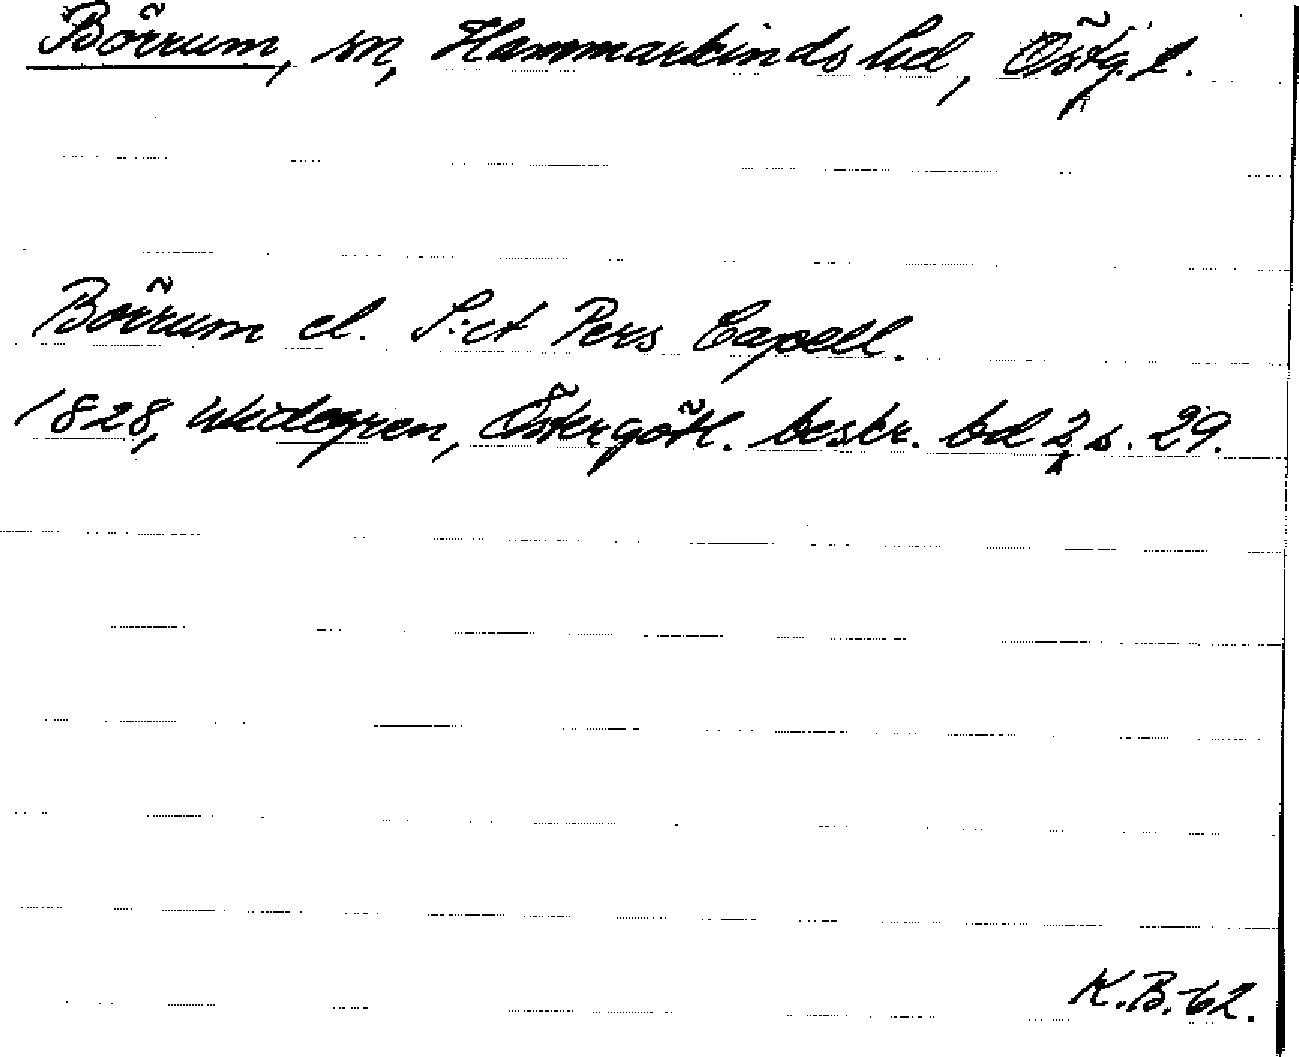 Börrum, sn, Hammarkinds hd, Östg. l.
Börrum el. S:ct Pers Capell.
1828, Widegren, Östergötl. beskr. bd 2, s. 29.
K.B.-62.